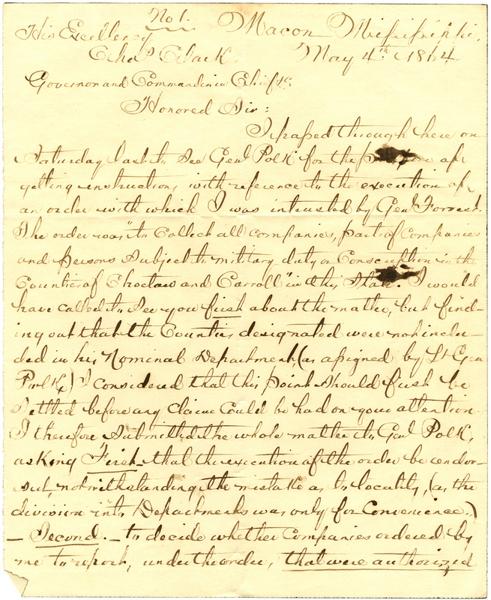 No 1.
His Excellency Macon Mississippi.
Chas Clark. May 4th 1864
Governor and Commander in Chief &c
Honored Sir:
I passed through here on
Saturday last to see Genl Polk for the of
getting instructions with reference to the execution of
an order with which I was intrusted by Genl Forrest
The order was "to Collect all companies, parts of Companies
and persons Subject to military duty or Conscription in the
Counties of Choctaw and Carroll" in this State. I would
have called to see you first about the matter, but find-
ing out that the Counties designated were not inclu-
ded in his Nominal Department, (as assigned by Lt Gen
Polk,) I considered that this point should first be
settled before any claim could be had on your attention.
I therefore submitted the whole matter to Genl Polk,
asking First that the execution of the order be endor-
sed, notwithstanding the mistake as to locality, (as the
division into Departments was only for Convenience.)
- Second. - to decide whether Companies ordered by
me to report, under the order, that were authorized